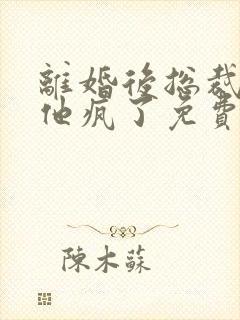 離婚後總裁
他瘋了免費
陳木蘇